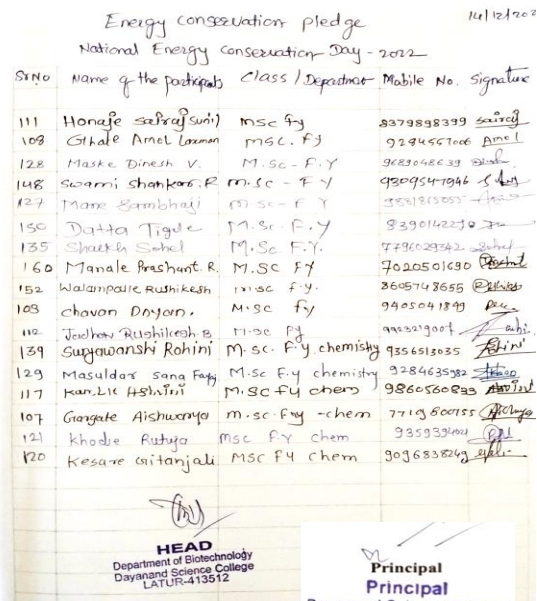 Energy conservation pledge 14/12/202
National Energy Conservation Day - 2022
Sr.No Name of the participants Class / Department Mobile No. Signature
111 Honaje Sairaj Sunil MSC fy 8379898399 sairaj
108 Ghale Amol Laxman MSC. fy Amol
128 Maske Dinesh V. M.Sc - F.Y 9689048639
148 Swami Shankar. R M.Sc - F Y
127 Mane Sambhaji M Sc - F Y
150 Datta Tigde M.Sc. F.Y
135 Shaikh Sohel M.Sc. F.Y. 7796029342 Sohel
160 Manale Prashant. R. M.SC FY 7020501690
152 Walampalle Rushikesh M.SC f.y. 8605748655
103 chavan Dnyan. M.SC fy 9405041849
112 Jadhav Rushikesh. B M.SC
139 Suryawanshi Rohini M.Sc. F.Y. chemistry 9356513035
129 Masuldar sana M.Sc F.Y chemistry 9284635982
117 M.SC FY chem 9860560833
107 Gargate Aishwarya M.Sc. F.Y -chem 7719600755
121 Khodje Rutuja MSC F.Y chem
120 Kesare Gitanjali MSC FY chem 9096838249
HEAD
Department of Biotechnology
Dayanand Science College
LATUR-413512
Principal
Principal